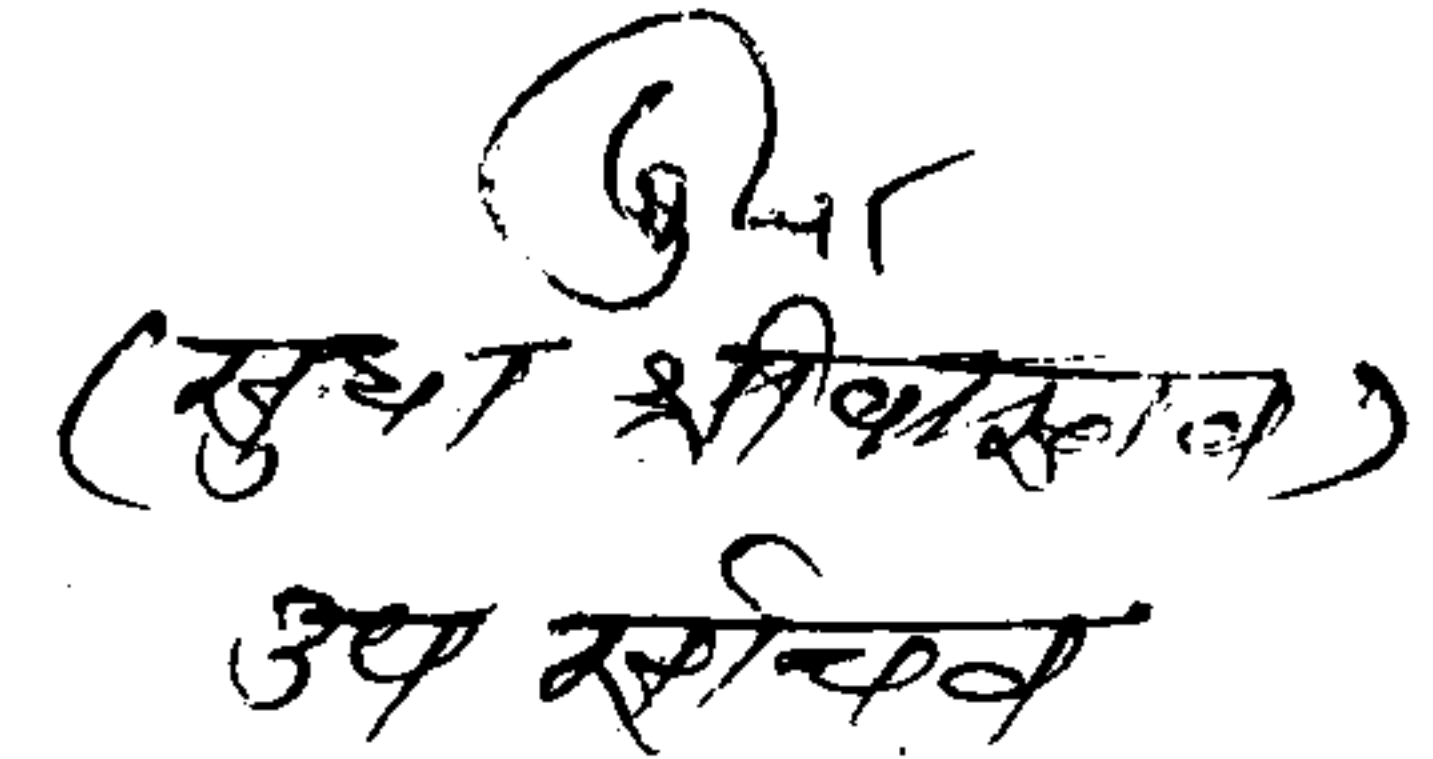 (सुधा श्रीवास्तव)
उप सचिव